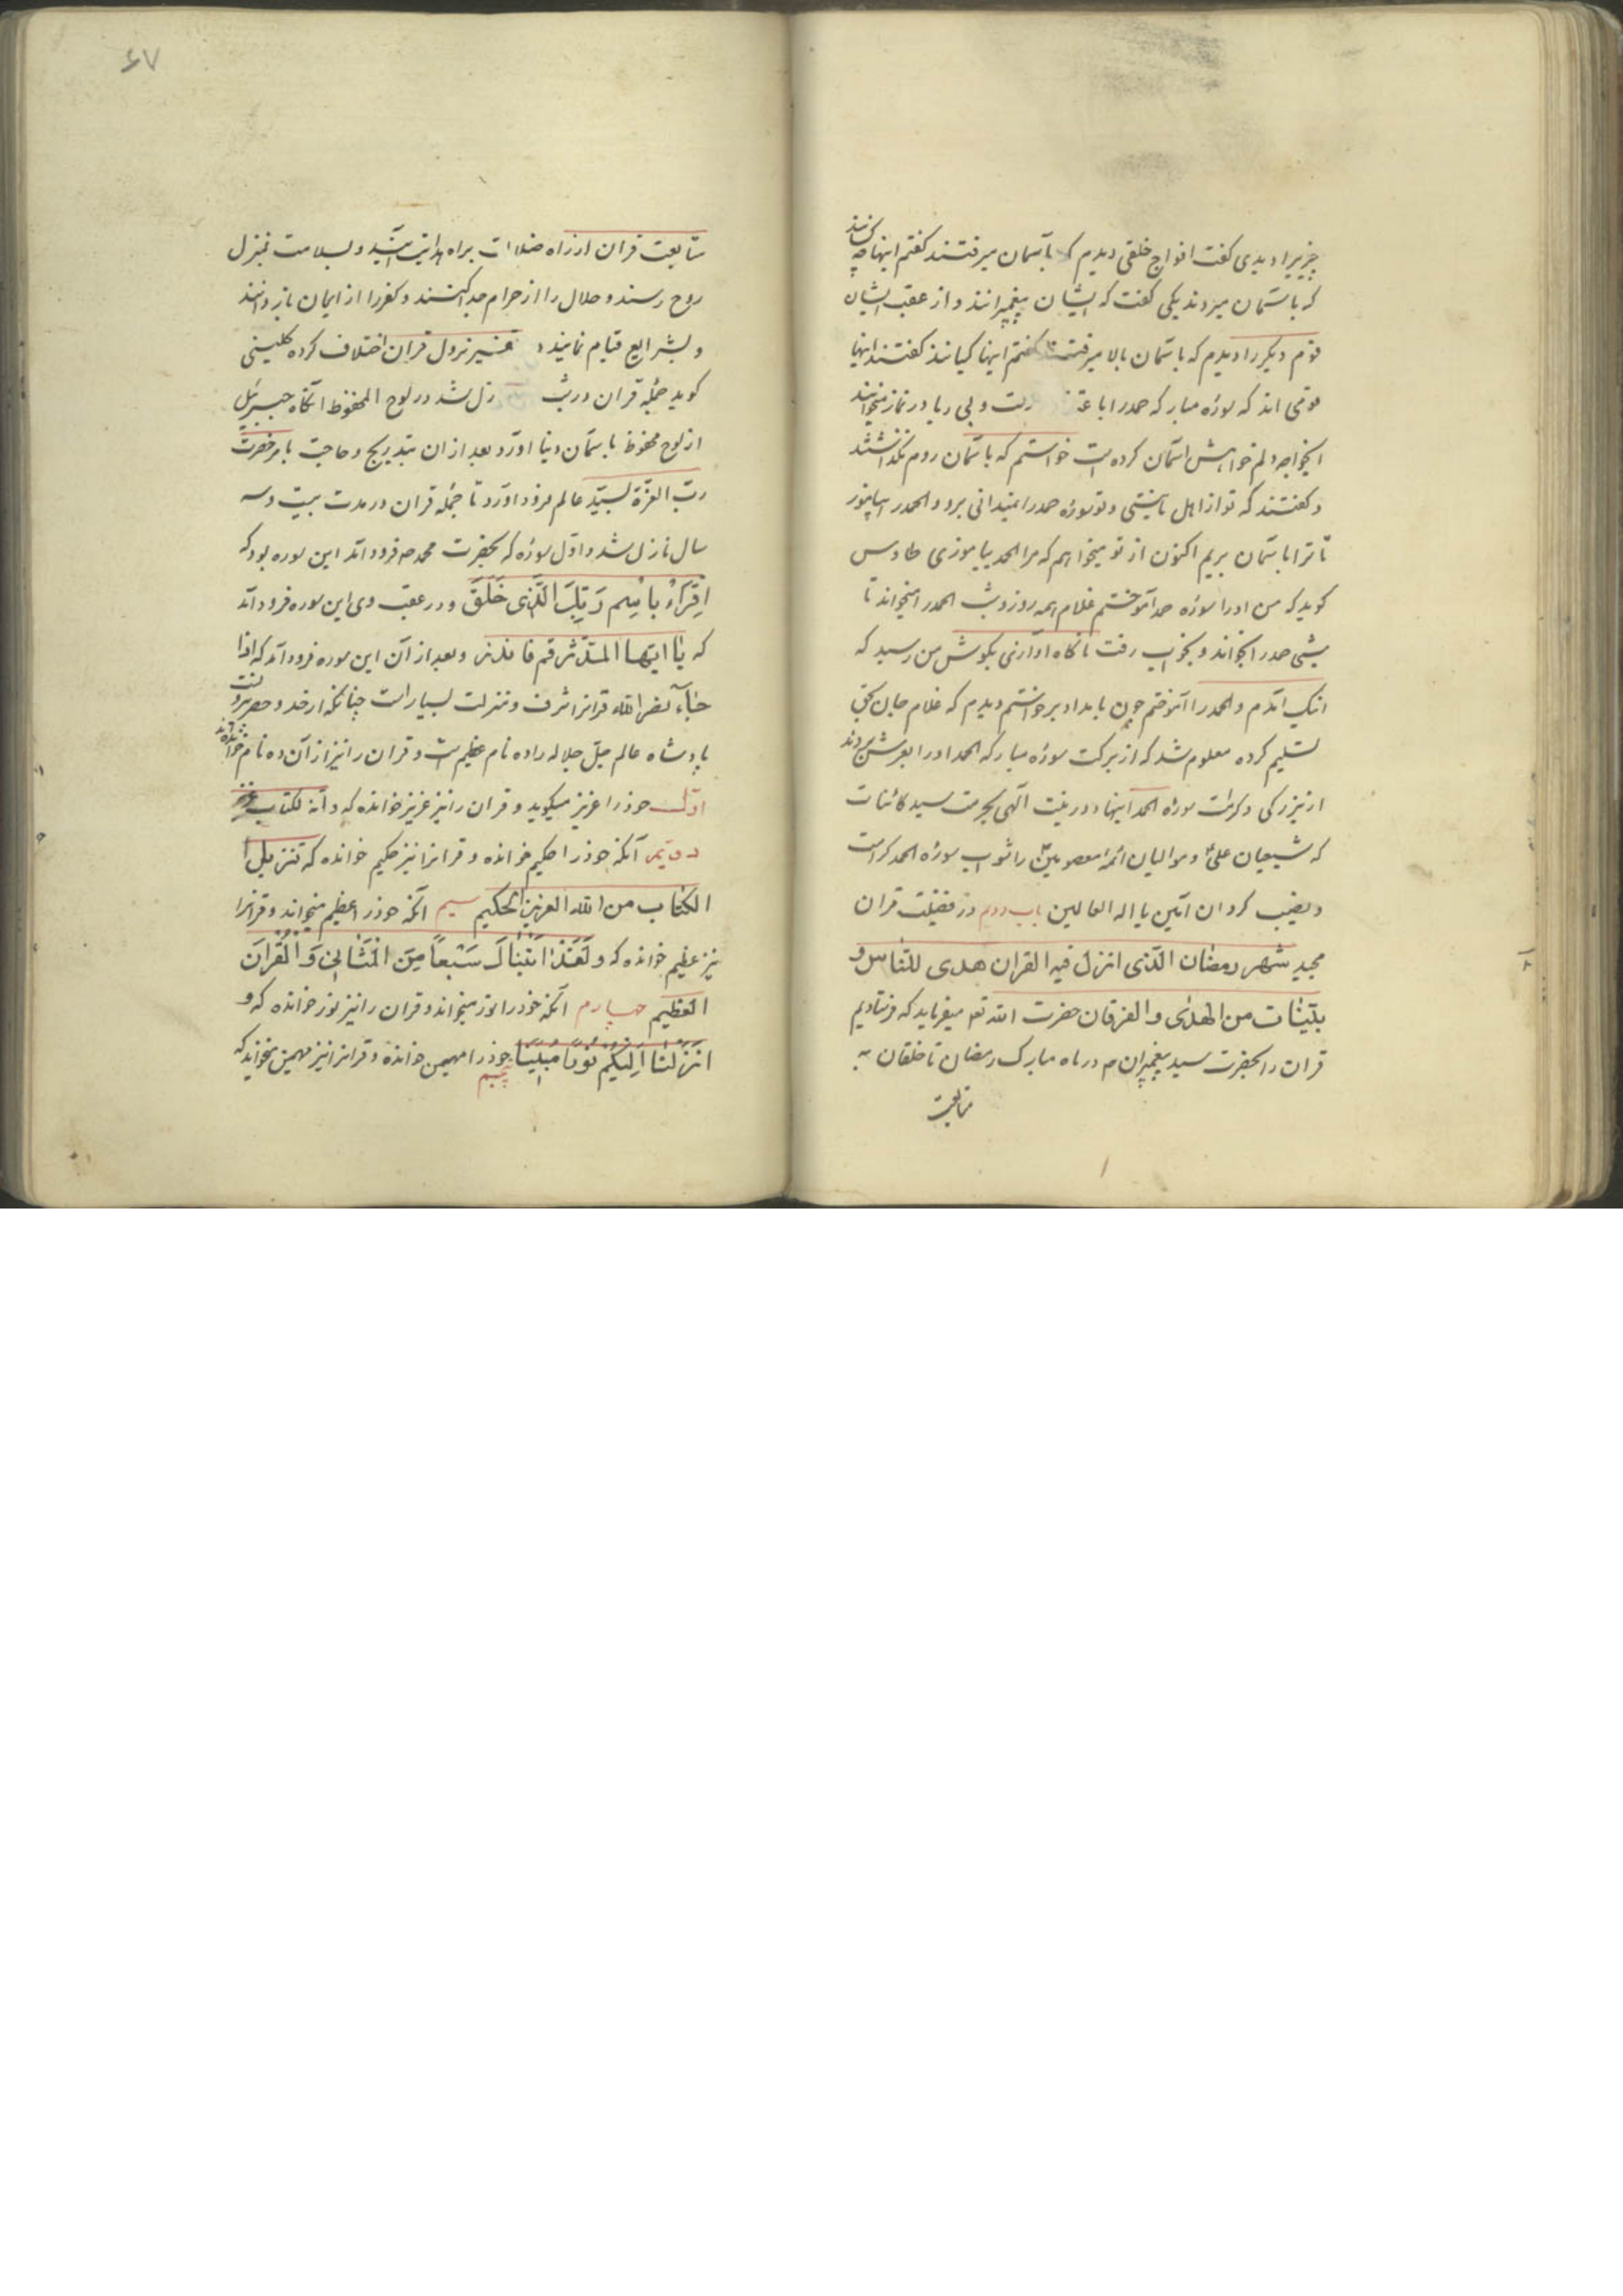 چیزیرا دیدی کفت افواج خلقی دیدم که بآسمان میرفتند کفتم اینها چه کسانند
که باسمان میروند یکی کفت که ایشان پیغمبرانند و از عقب ایشان
قوم دیکر را دیدم که باسمان بالا میرفتند کفتم اینها کیانند کفتند اینها
قومی اند که سوره مبارکه حمد را با و بی ریا در نماز میخوانند
ایخواجه دلم خواهش اسمان کرده است خواستم که باسمان روم نکذاشتند
و کفتند که تو از اهل نیستی و تو سوره حمد را نمیدانی برو و الحمد را بیاموز
تا ترا باسمان بریم اکنون از تو میخواهم که مرا الحمد بیاموزی طاوس
کوید که من او را سوره حمد آموختم غلام همه روز و شب الحمد را میخواند تا
شبی حمد را بخواند و بخواب رفت ناکاه اوازی بکوش من رسید که
اینک امدم و الحمد را آموختم چون بامداد برخواستم دیدم که غلام جان بحق
تسلیم کرده معلوم شد که از برکت سوره مبارکه الحمد او را بعرش بردند
از بزرکی و کرامت سوره الحمد اینها دور نیست الهی بحرمت سید کائنات
که شیعیان علی و موالیان ائمه معصومین را ثواب سوره الحمد کرامت
و نصیب کردان آمین یا اله العالمین باب دویم در فضیلت قران
مجید شهر رمضان الذی انزل فیه القران هدی للناس و
بینات من الهدی و الفرقان حضرت الله تع میفرماید که فرستادیم
قران را بحضرت سید پیغمبران م در ماه مبارک رمضان تا خلقان به
متابعت
۶۷
متابعت قران از راه ضلالت براه هدایت آیند و بسلامت بمنزل
روح رسند و حلال را از حرام جدا کنند و کفر را از ایمان باز دانند
و بشرایع قیام نمایند نزول قران اختلاف کرده کلینی
کوید جمله قران در شب زل شد در لوح المحفوظ انکاه جبرئیل
از لوح محفوظ باسمان دنیا اورد و بعد از ان بتدریج و حاجت بامر حضرت
رب العزة بسید عالم فرود اورد تا جمله قران در مدت بیست و سه
سال نازل شد و اول سوره که بحضرت محمد ص فرود امد این سوره بود که
اقراء باسم ربک الذی خلق و در عقب وی این سوره فرود آمد
که یا ایها المدثر قم فانذر و بعد از آن این سوره فرود آمد که اذا
جاء نصر الله قرانرا شرف و منزلت بسیار است چنانکه از حد و حصر
پادشاه عالم جل جلاله را ده نام عظیم است و قران را نیز از آن ده نام خوانده اند
اول خود را عزیز میکوید و قران را نیز عزیز خوانده که و انه لکتاب عزیز
دویم آنکه خود را حکیم خوانده و قرانرا نیز حکیم خوانده که تنزیل
الکتاب من الله العزیز الحکیم سیم انکه خود را عظیم میخواند و قرانرا
نیز عظیم خوانده که و لقد اتیناک سبعا من المثانی و القران
العظیم چهارم آنکه خود را نور میخواند و قران را نیز نور خوانده که و
انزلنا الیکم نورا مبینا پنجم خود را مهیمن خوانده و قرانرا نیز مهیمن میخواند که